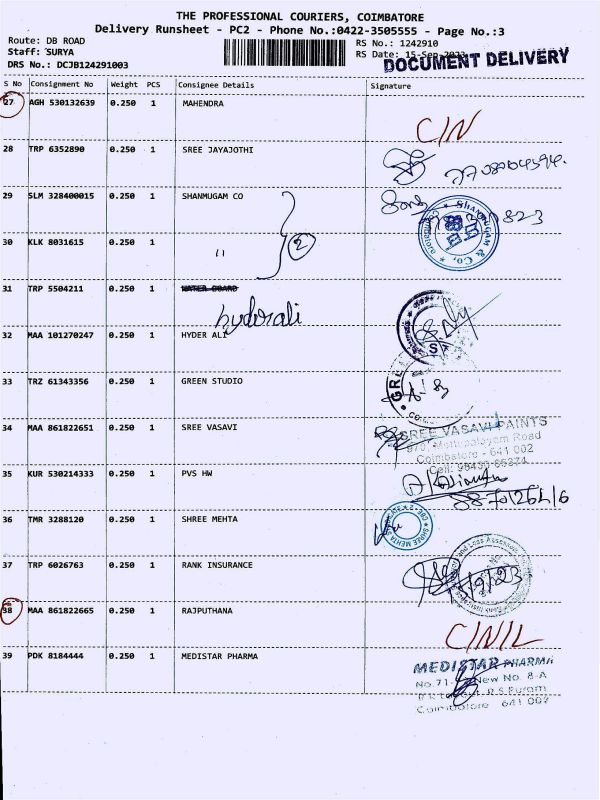 THE PROFESSIONAL COURIERS, COIMBATORE
Delivery Runsheet - PC2 - Phone No.:0422-3505555 - Page No.:3
Route: DB ROAD
Staff: SURYA
DRS No.: DCJB124291003
RS No.: 1242910
RS Date: 15-Sep-2023
DOCUMENT DELIVERY
S No Consignment No Weight PCS Consignee Details Signature
27 AGH 530132639 0.250 1 MAHENDRA
C/N
28 TRP 6352890 0.250 1 SREE JAYAJOTHI
29 SLM 328400015 0.250 1 SHANMUGAM CO
SHANMUGAM & Co.
823
30 KLK 8031615 0.250 1 11
2
31 TRP 5504211 0.250 1 WATER BOARD
hyderali
32 MAA 101270247 0.250 1 HYDER ALI
33 TRZ 61343356 0.250 1 GREEN STUDIO
34 MAA 861822651 0.250 1 SREE VASAVI
SREE VASAVI PAINTS
Mettupalayam Road
Coimbatore - 641 002
35 KUR 530214333 0.250 1 PVS HW
36 TMR 3288120 0.250 1 SHREE MEHTA
SHREE MEHTA
37 TRP 6026763 0.250 1 RANK INSURANCE
38 MAA 861822665 0.250 1 RAJPUTHANA
C/N/L
39 PDK 8184444 0.250 1 MEDISTAR PHARMA
MEDISTAR PHARMA
No.71, New No. 8-A
R S Puram
Coimbatore 641 002